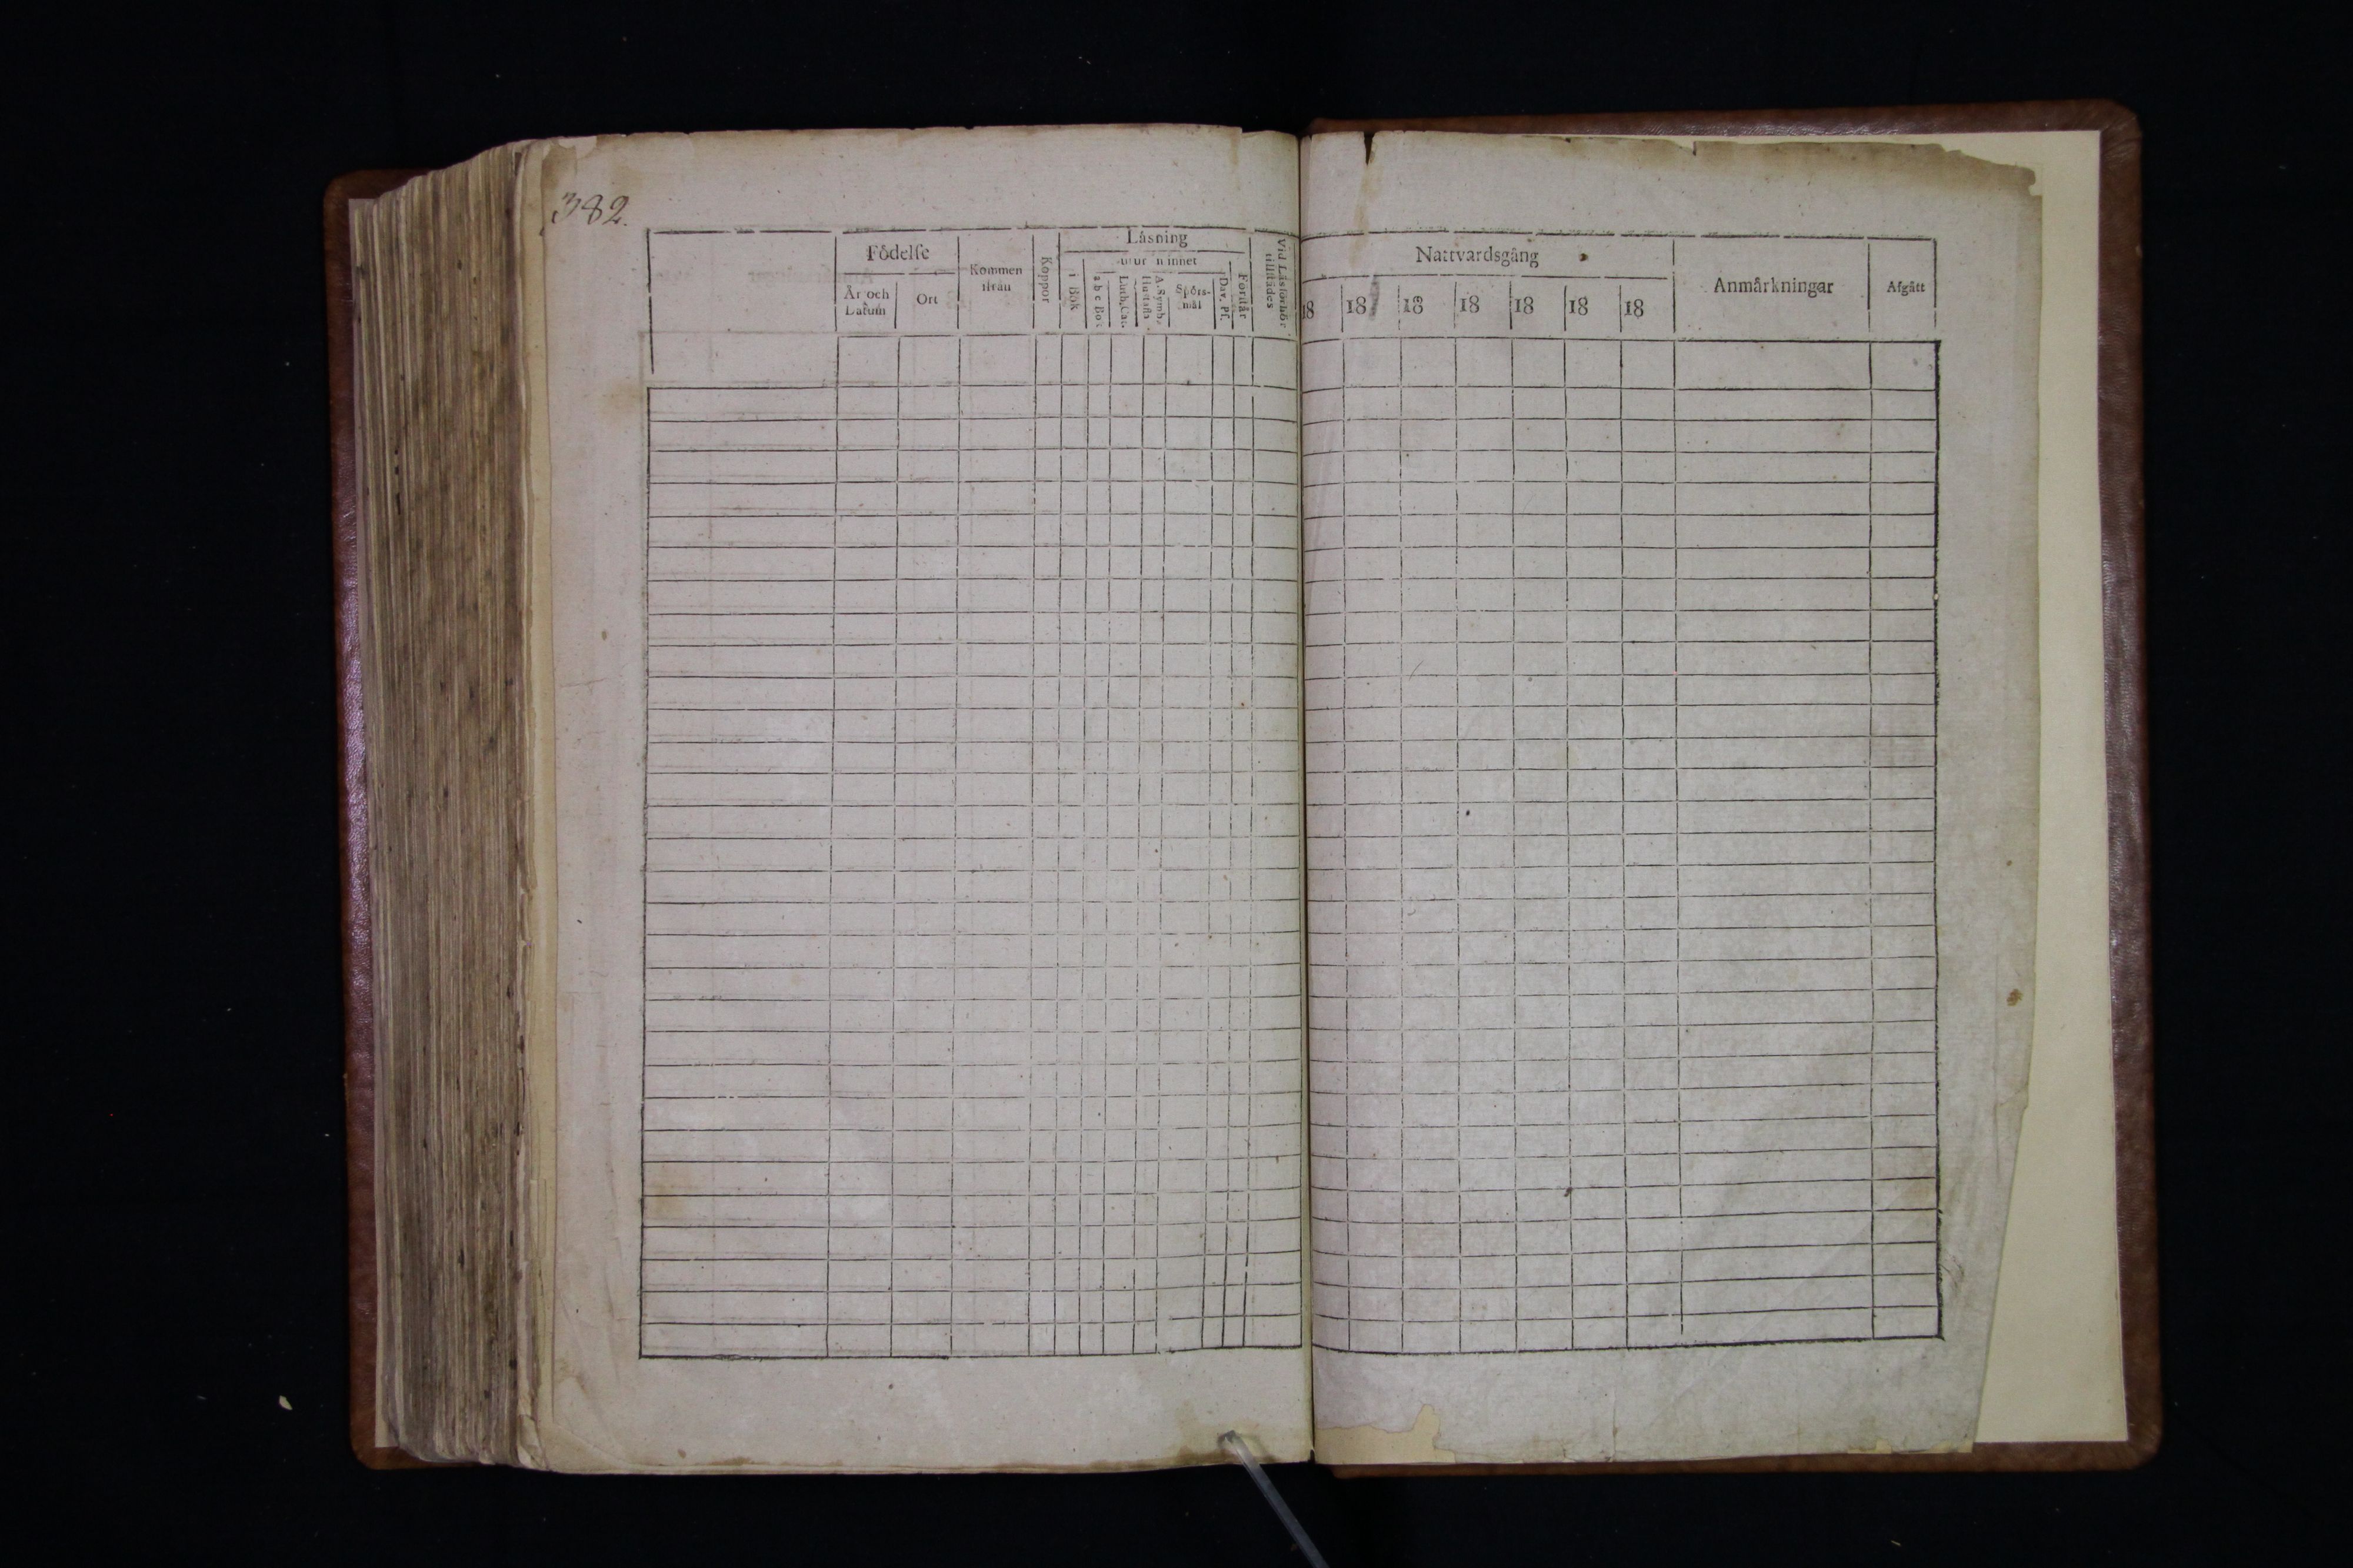 382.
Födelse
År och Datum
Ort
Kommen ifrån
Koppor
Läsning
i Bok
utur minnet
a b c Bok
Luth. Cat.
A. Symb.
Hustafla
Spörs-
mål
Dav. Ps.
Förstår
Vid Läsförhör
tillstädes
Nattvardsgång
18 18 18 18 18 18 18
Anmärkningar
Afgått